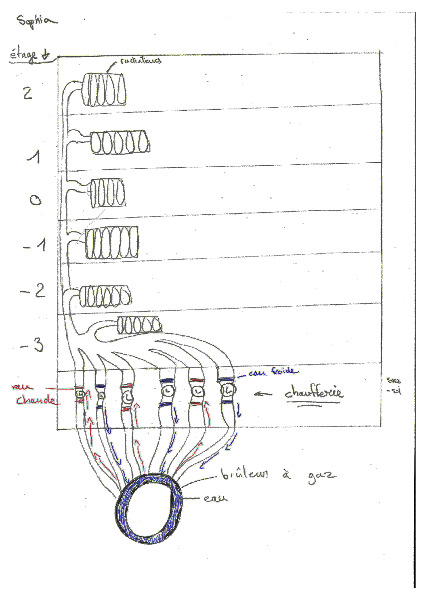 Sophia
étage
radiateurs
2
1
0
-1
-2
-3
eau froide
eau
chaude
chaufferie
brûleur à gaz
eau